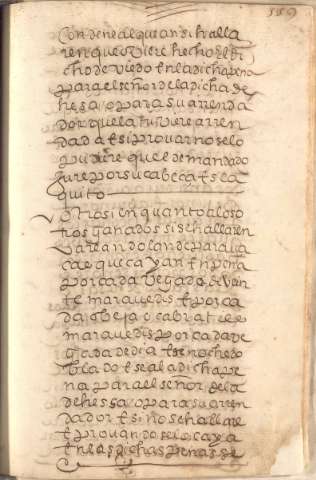 Condene al que ansi halla
ren que oviere hecho el di
cho deviedo en la dicha pena
para el señor de la dicha de
hesa o para su arrenda
dor que la tuviere arren
dada e si provar no se lo
pudiere que el demandado
jure por su cabeça e sea
quito
otrosi en quanto a los o
tros ganados si se hallaren
vareando landes para va
cas que cayan en pena
por cada vegada de vein
te maravedis e por ca
da obeja o cabra treze
maravedis por cada ve
gada de dia e de noche do
blado e sea la dicha pe
na para el señor de la
dehessa o para su arren
dador e si no se hallare
e provandoselo caya
en las dichas penas se